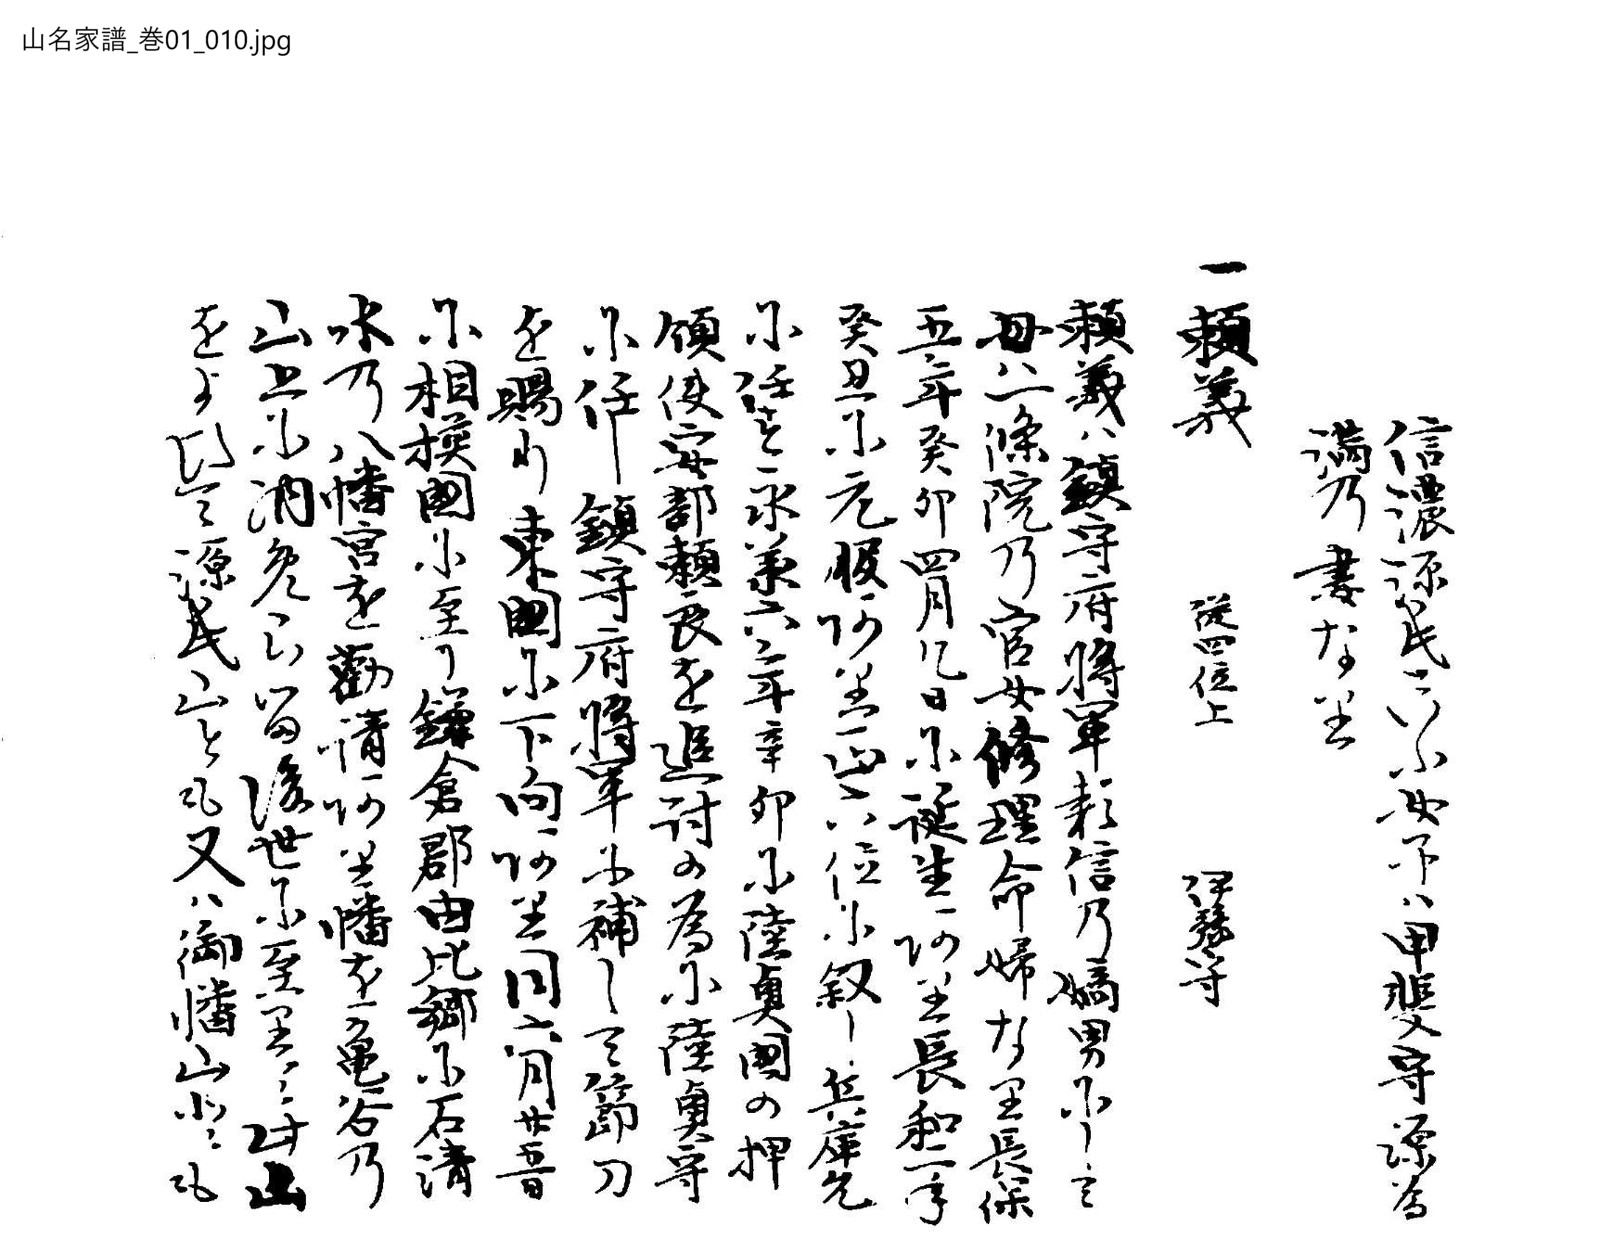 山名家譜_巻01_010.jpg
信濃源氏といふ女子ハ甲斐守源為
満乃妻なり
一頼義 従四位上 伊豫守
頼義ハ鎮守府将軍頼信乃嫡男にして
母ハ一條院乃官女修理命婦なり長保
五年癸卯四月几日小誕生一ありて長和二年
癸丑小元服ありて正六位小叙し兵庫允
小任す永承六年辛卯小陸奥国の押
領使安部頼良を追討の為小陸奥守
小任し鎮守府将軍小補して節刀
を賜り東国小下向あり同六月廿五日
小相模国小至り鎌倉郡由比郷小石清
水乃八幡宮を勧請あり幡を亀谷乃
山上小納免られ後世小至里其山
をよひて源氏山とも又ハ御幡山とも